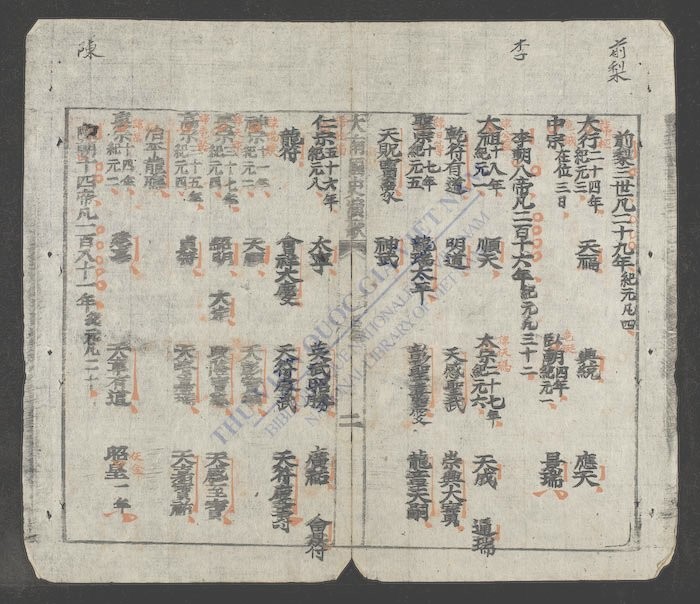 前梨
李
陳
前黎三世凡二十九年紀元凡四
大行二十四年紀元三 天福 興統 應天
中宗在位三日 臥朝四年紀元一 景瑞
李朝八帝凡二百十六年紀元凡三十二
太祖十八年紀元一 順天 太宗二十七年紀元六 天成 通瑞
乾符有道 明道 天感聖武 崇興大寶
聖宗十七年紀元五 龍瑞太平 彰聖嘉慶 龍章天嗣
天貺寶象 神武
大南國史演歌 二
仁宗五十六年紀元八 太寧 英武昭勝 廣祐 會豊符
龍符 會祥大慶 天符睿武 天符慶壽
神宗十一年 天順 天彰寶嗣
英宗三十七年紀元四 紹明 大定 政隆寶應 天感至寶
高宗三十五年紀元四 貞符 天資嘉瑞 天嘉寶祐
治平龍應
惠宗十四年紀元二 建嘉 天章有道 昭皇一年
陳朝十四帝凡一百八十一年 紀元凡二十
THƯ VIỆN QUỐC GIA VIỆT NAM
NATIONAL LIBRARY OF VIETNAM